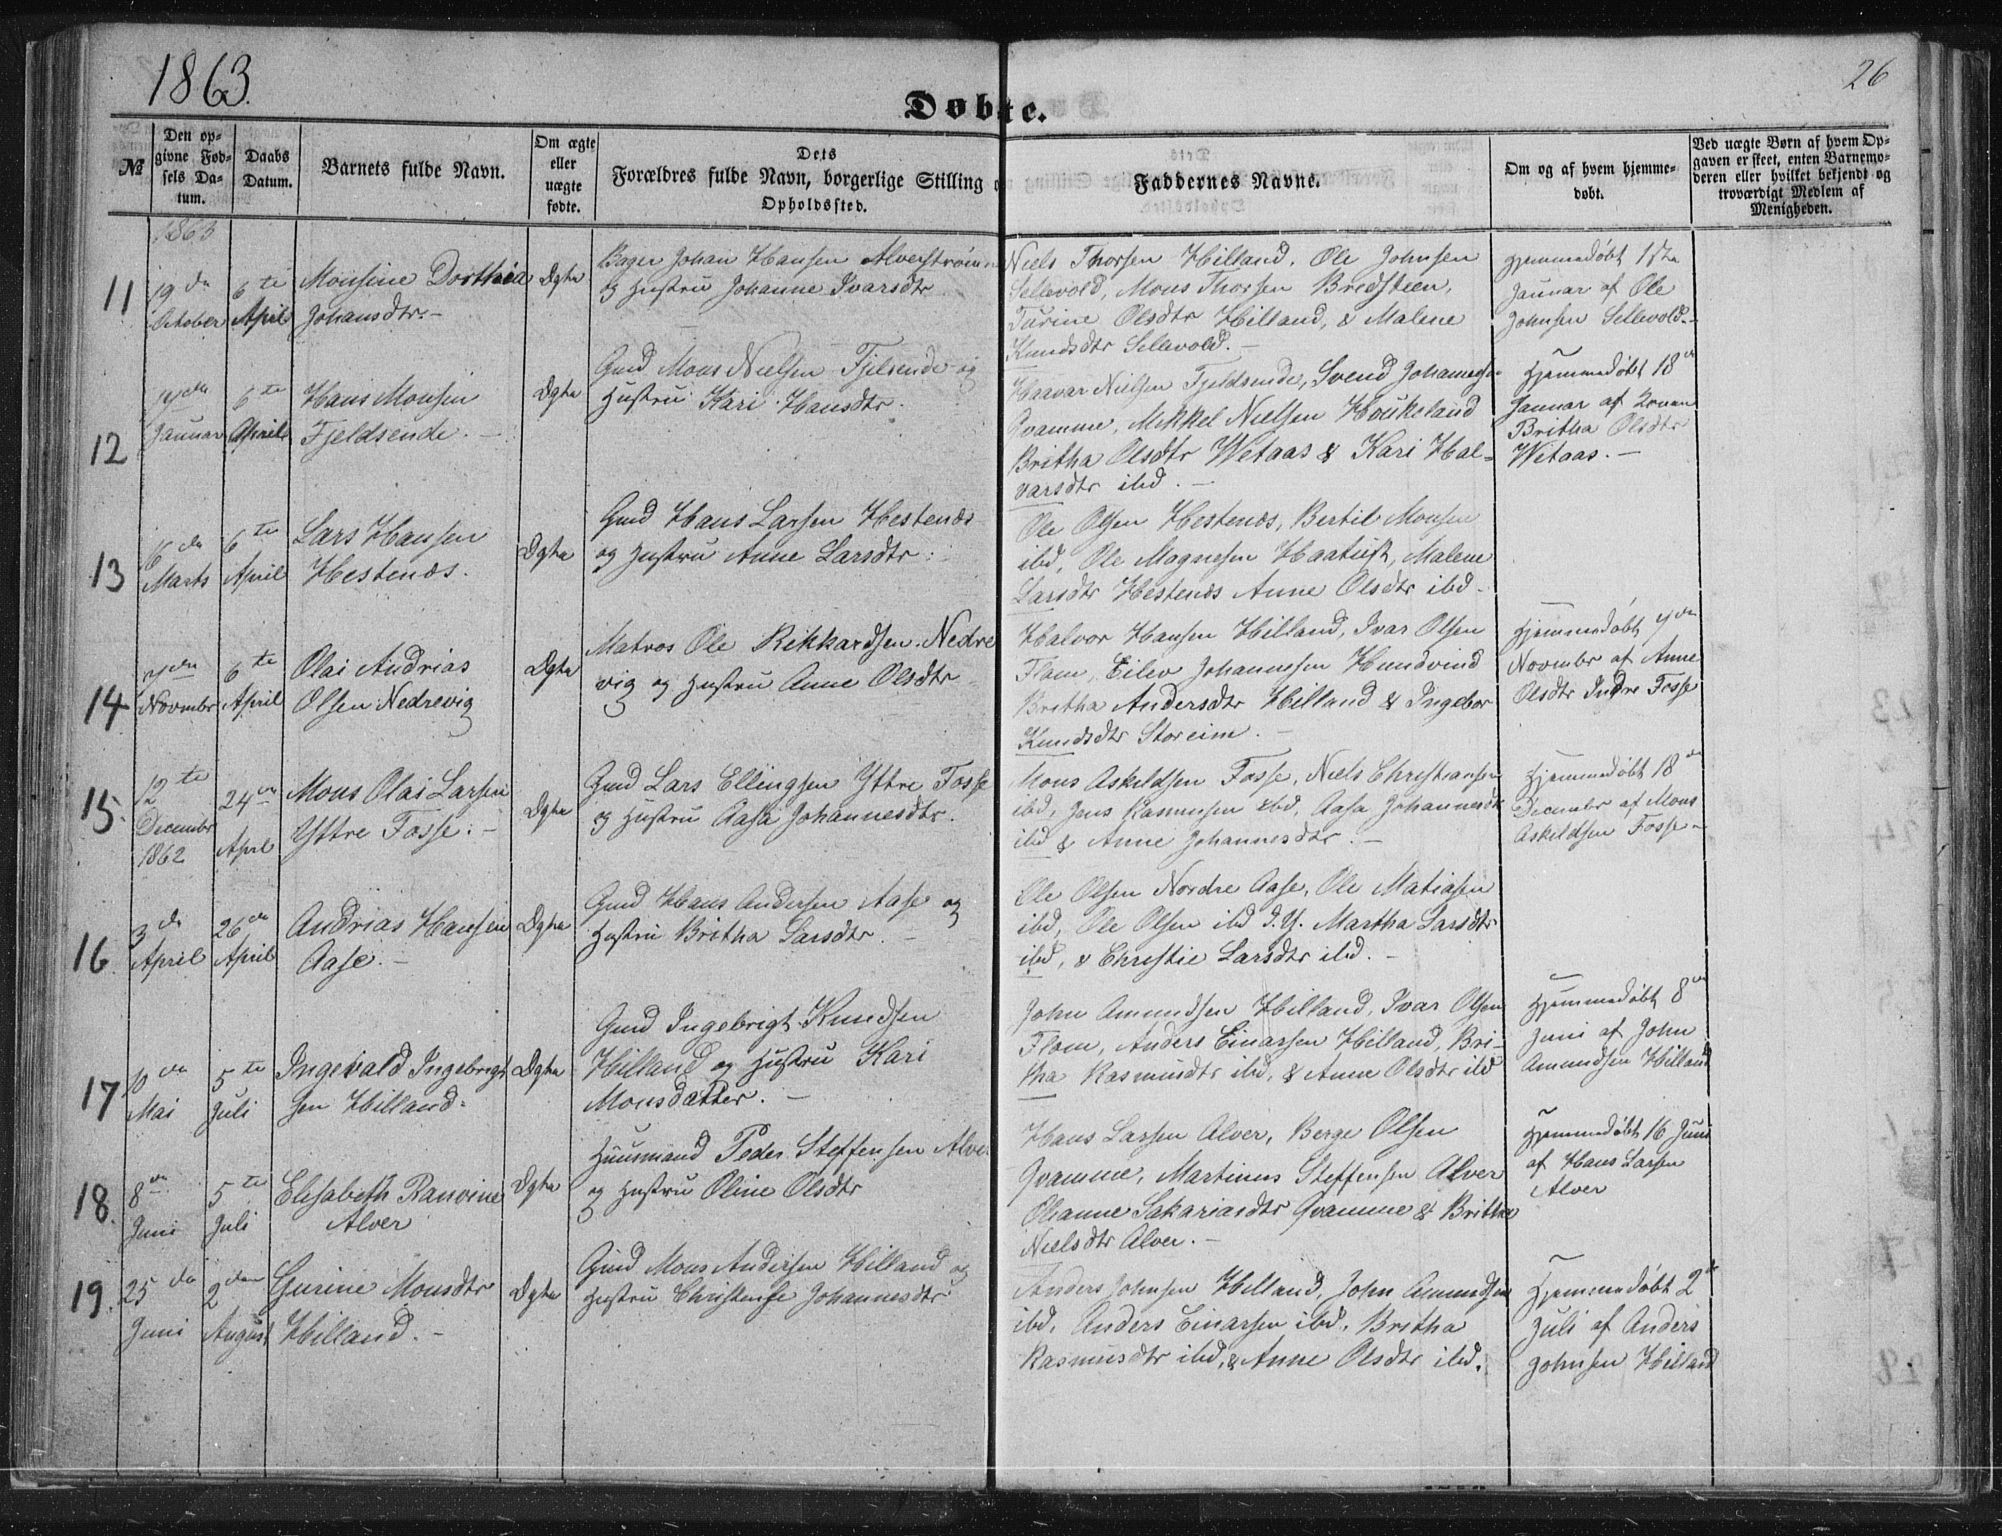 1863.
26
Døbte.
№
Den op-
givne Fød-
sels Da-
tum.
Daabs
Datum.
Barnets fulde Navn.
Om ægte
eller
uægte
fødte.
Dets
Forældres fulde Navn, borgerlige Stilling o
Opholdssted.
Faddernes Navne.
Om og af hvem hjemme-
døbt.
Ved uægte Børn af hvem Op-
gaven er skeet, enten Barnemo-
deren eller hvilket bekjendt og
troværdigt Medlem af
Menigheden.
11
1863
19de
October
6te
April
Monsine Dorthea
Johansdtr. -
Ægte
Bager Johan Hansen Alverstrøm
og Hustru Johanne Ivarsdtr
Niels Thorsen Hilland, Ole Johnsen
Sellevold, Mons Thorsen Bredsteen,
Turine Olsdtr Hilland, & Malene
Knudsdtr Sellevold. -
Hjemmedøbt 1ste
Januar af Ole
Johnsen Sellevold. -
12
Januar
6te
April
Hans Monsen
Fjeldsende. -
Ægte
Gmd Mons Nielsen Fjelsende og
Hustru Kari Hansdtr.
Haavar Nielsen Fjeldsende, Svend Johannesen
Qvamme, Mikkel Nielsen Houkeland
Britha Olsdtr Wetaas & Kari Hal-
varsdtr ibd. -
Hjemmedøbt 18de
Januar af Konen
Britha Olsdtr
Wetaas. -
13
6de
Marts
6te
April
Lars Hansen
Hestenæs.
Ægte
Gmd Hans Larsen Hestenæs
og Hustru Anne Larsdtr.
Ole Olsen Hestenæs, Bertil Monsen
ibd, Ole Magnesen Haatuft, Malene
Larsdtr Hestenæs Anne Olsdtr ibd.
14
7de
Novembr
6te
April
Olai Andrias
Olsen Nedrevig
Ægte
Matros Ole Rikkardsen Nedre
vig og Hustru Anne Olsdtr
Halvor Hansen Hilland, Ivar Olsen
Flom, Eilev Johannessen Hundvind
Britha Andersdtr Hilland & Ingebor
Knudsdtr Storeim. -
Hjemmedøbt 9de
Novembr af Anne
Olsdtr Indre Fosse
15.
12te
Decembr
1862
24de
April
Mons Olai Larsen
Yttre Fosse. -
Ægte
Gmd Lars Ellingsen Yttre Fosse
og Hustru Aasa Johannesdtr.
Mons Askildsen Fosse, Niels Christiansen
ibd, Jens Rasmussen ibd, Aasa Johannesdtr
ibd & Anne Johannesdtr. -
Hjemmedøbt 18de
Decembr af Mons
Askildsen Fosse -
16.
3de
April
26de
April
Andrias Hansen
Aase. -
Ægte
Gmd Hans Andersen Aase og
Hustru Britha Larsdtr. -
Ole Olsen Nordre Aase, Ole Matiasen
ibd, Ole Olsen ibd d.y. Martha Larsdtr
ibd, & Christie Larsdtr ibd. -
17
10de
Mai
5te
Juli
Ingevald Ingebrigt
sen Hilland.
Ægte
Gmd Ingebrigt Knudsen
Hilland og Hustru Kari
Monsdatter. -
John Amundsen Hilland, Ivar Olsen
Flom, Anders Einarsen Hilland, Bri-
tha Rasmusdtr ibd, & Anne Olsdtr ibd
Hjemmedøbt 8de
Juni af John
Amundsen Hilland
18.
8de
Juni
5te
Juli
Elisabeth Ranvine
Alver
Ægte
Huusmand Peder Steffensen Alver
og Hustru Oline Olsdtr
Hans Larsen Alver, Berge Olsen
Qvamme, Martinus Steffensen Alver
Olianne Sakariasdtr Qvamme & Britha
Nielsdtr Alver. -
Hjemmedøbt 16 Juni
af Hans Larsen
Alver
19.
25de
Juni
2den
August
Gurine Monsdtr
Hilland. -
Ægte
Gmd Mons Andersen Hilland og
Hustru Christense Johannesdtr
Anders Johnsen Hilland, John Amundsen
ibd, Anders Einarsen ibd, Britha
Rasmusdtr ibd, & Anne Olsdtr ibd.
Hjemmedøbt 2de
Juli af Anders
Johnsen Hilland